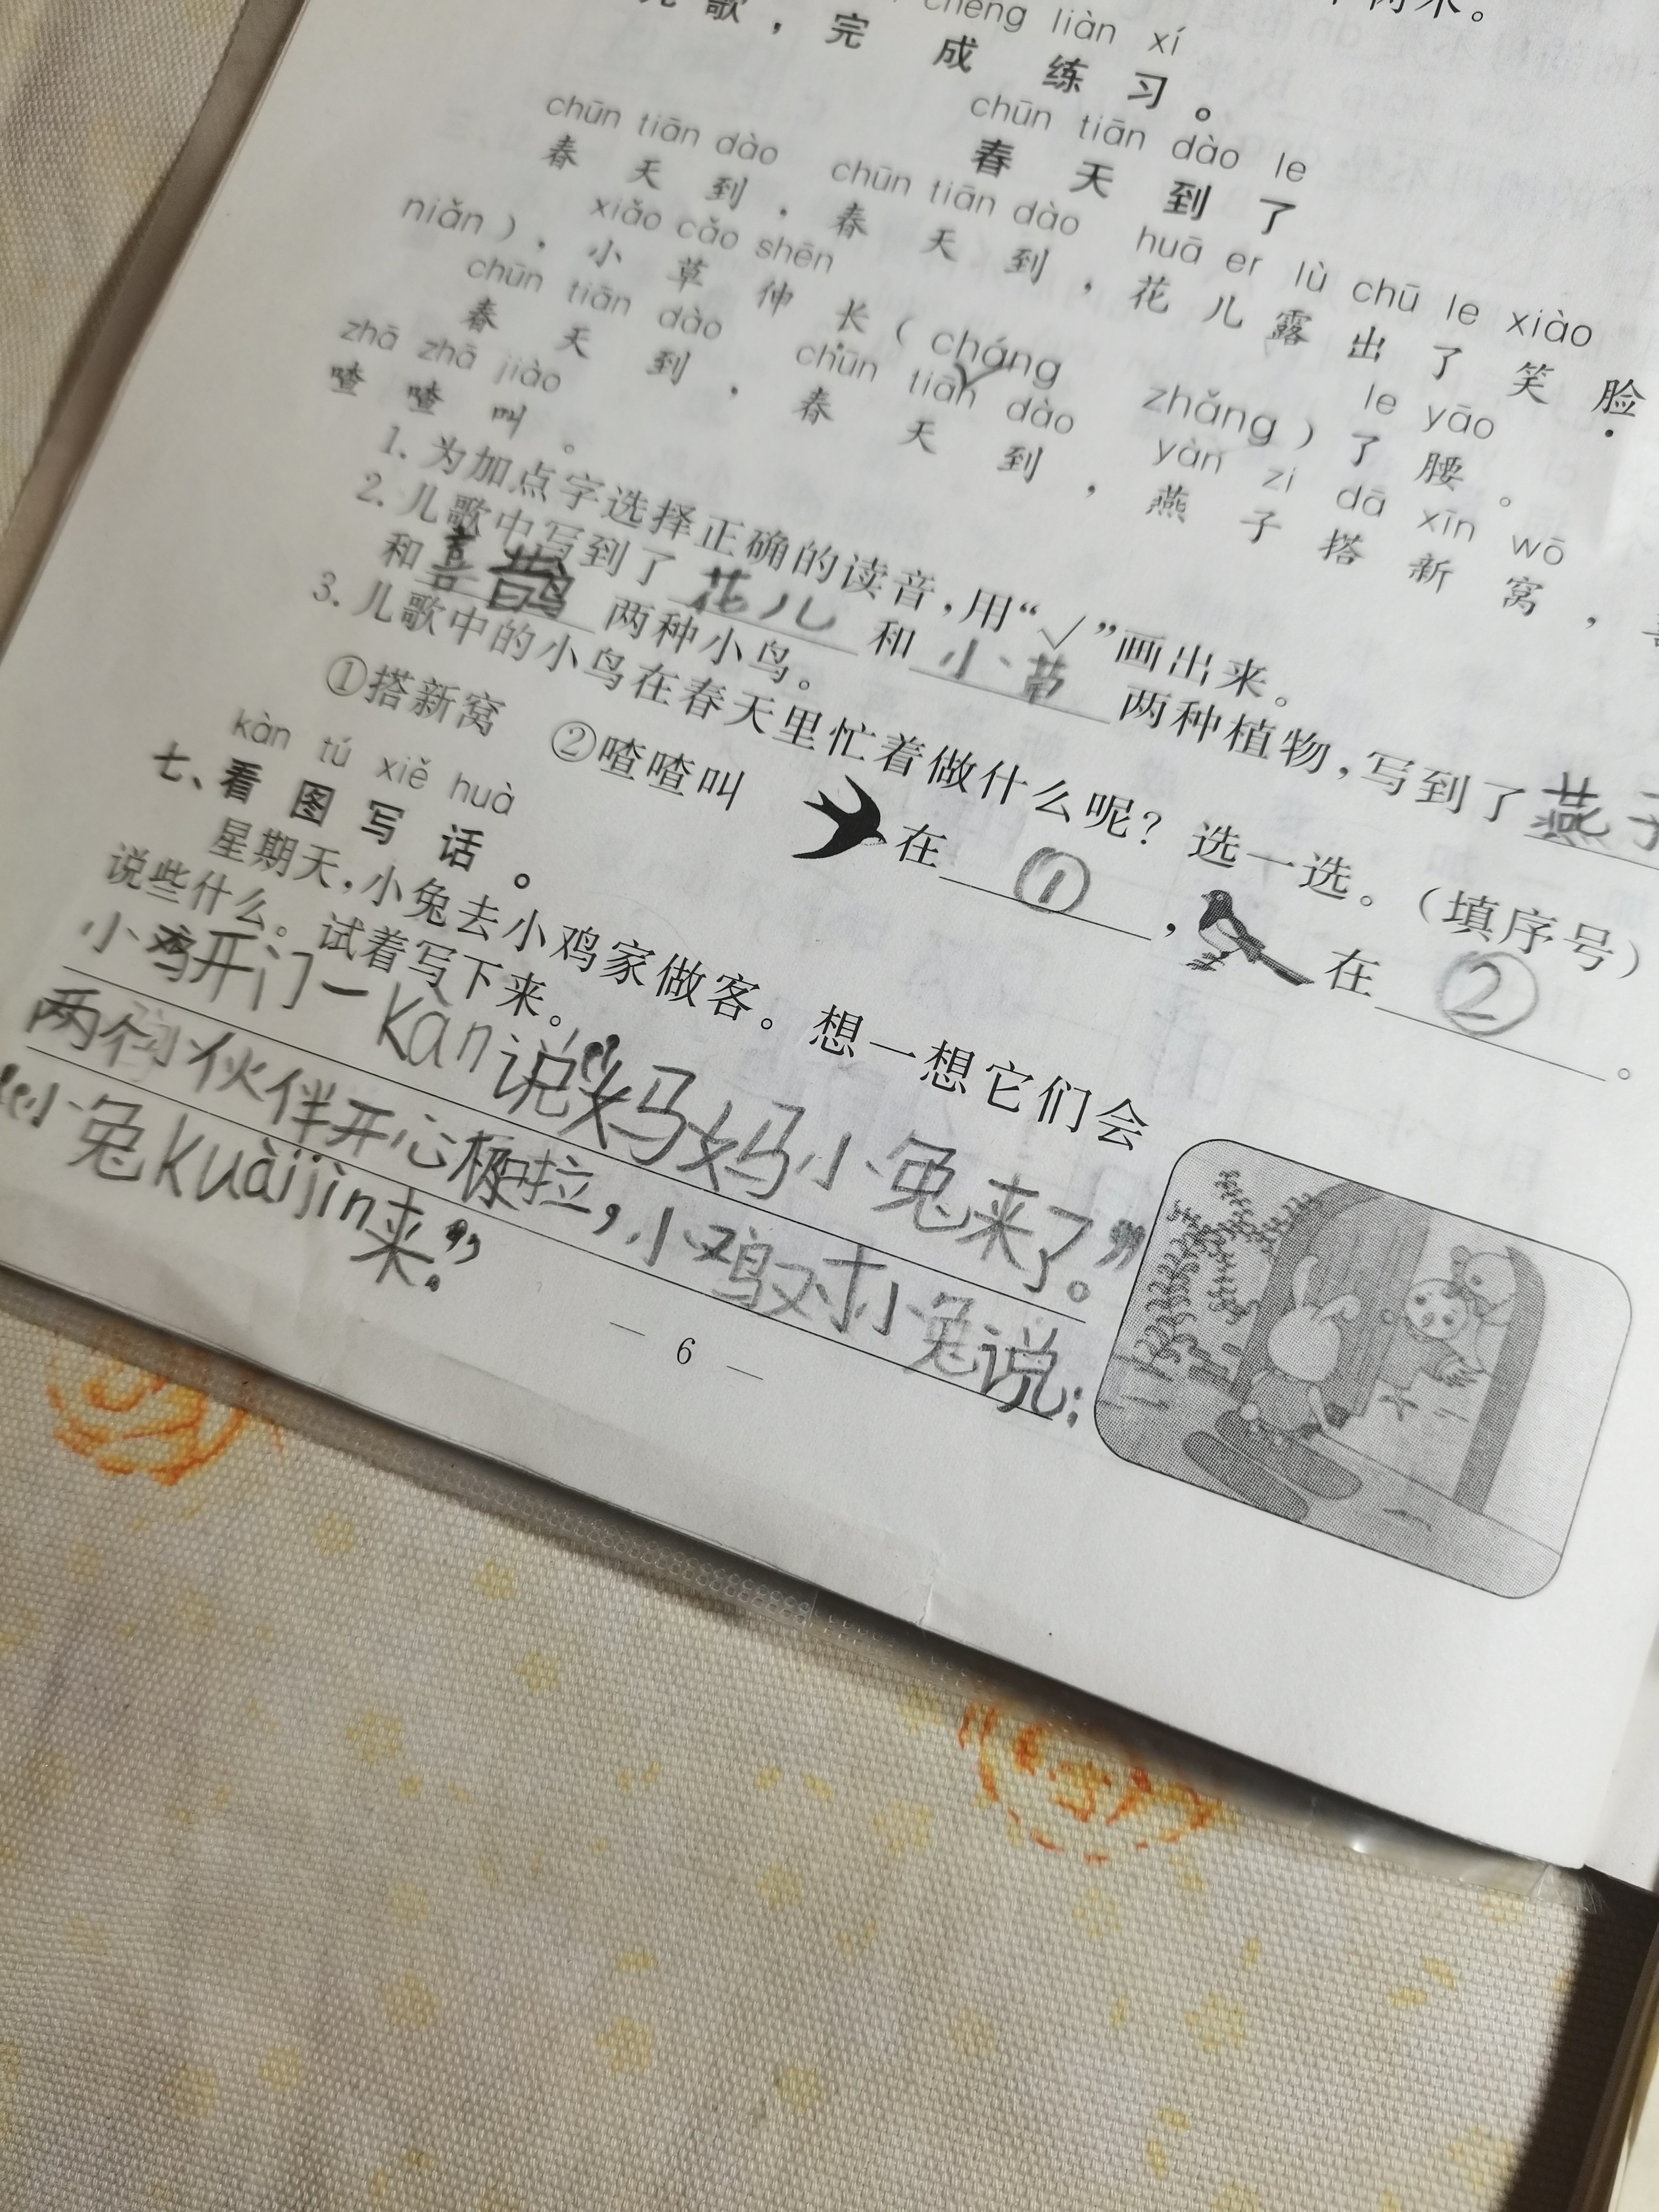 chéng liàn xí
儿歌，完成练习。
chūn tiān dào le
春天到了
chūn tiān dào chūn tiān dào huā er lù chū le xiào
春天到，春天到，花儿露出了笑脸
niǎn），xiǎo cǎo shēn le yāo
小草伸长（cháng zhǎng）了腰。
chūn tiān dào chūn tiān dào yàn zi dā xīn wō
春天到，春天到，燕子搭新窝，
zhā zhā jiào
喳喳叫。
1. 为加点字选择正确的读音，用“√”画出来。
2. 儿歌中写到了花儿和小草两种植物，写到了燕子
和喜鹊两种小鸟。
3. 儿歌中的小鸟在春天里忙着做什么呢？选一选。（填序号）
①搭新窝 ②喳喳叫 在①，在②。
kàn tú xiě huà
七、看图写话。
星期天，小兔去小鸡家做客。想一想它们会
说些什么。试着写下来。
小鸡开门一kàn说“妈妈小兔来了。”
两个伙伴开心极啦，小鸡对小兔说：
“小兔kuàijìn来。”
— 6 —